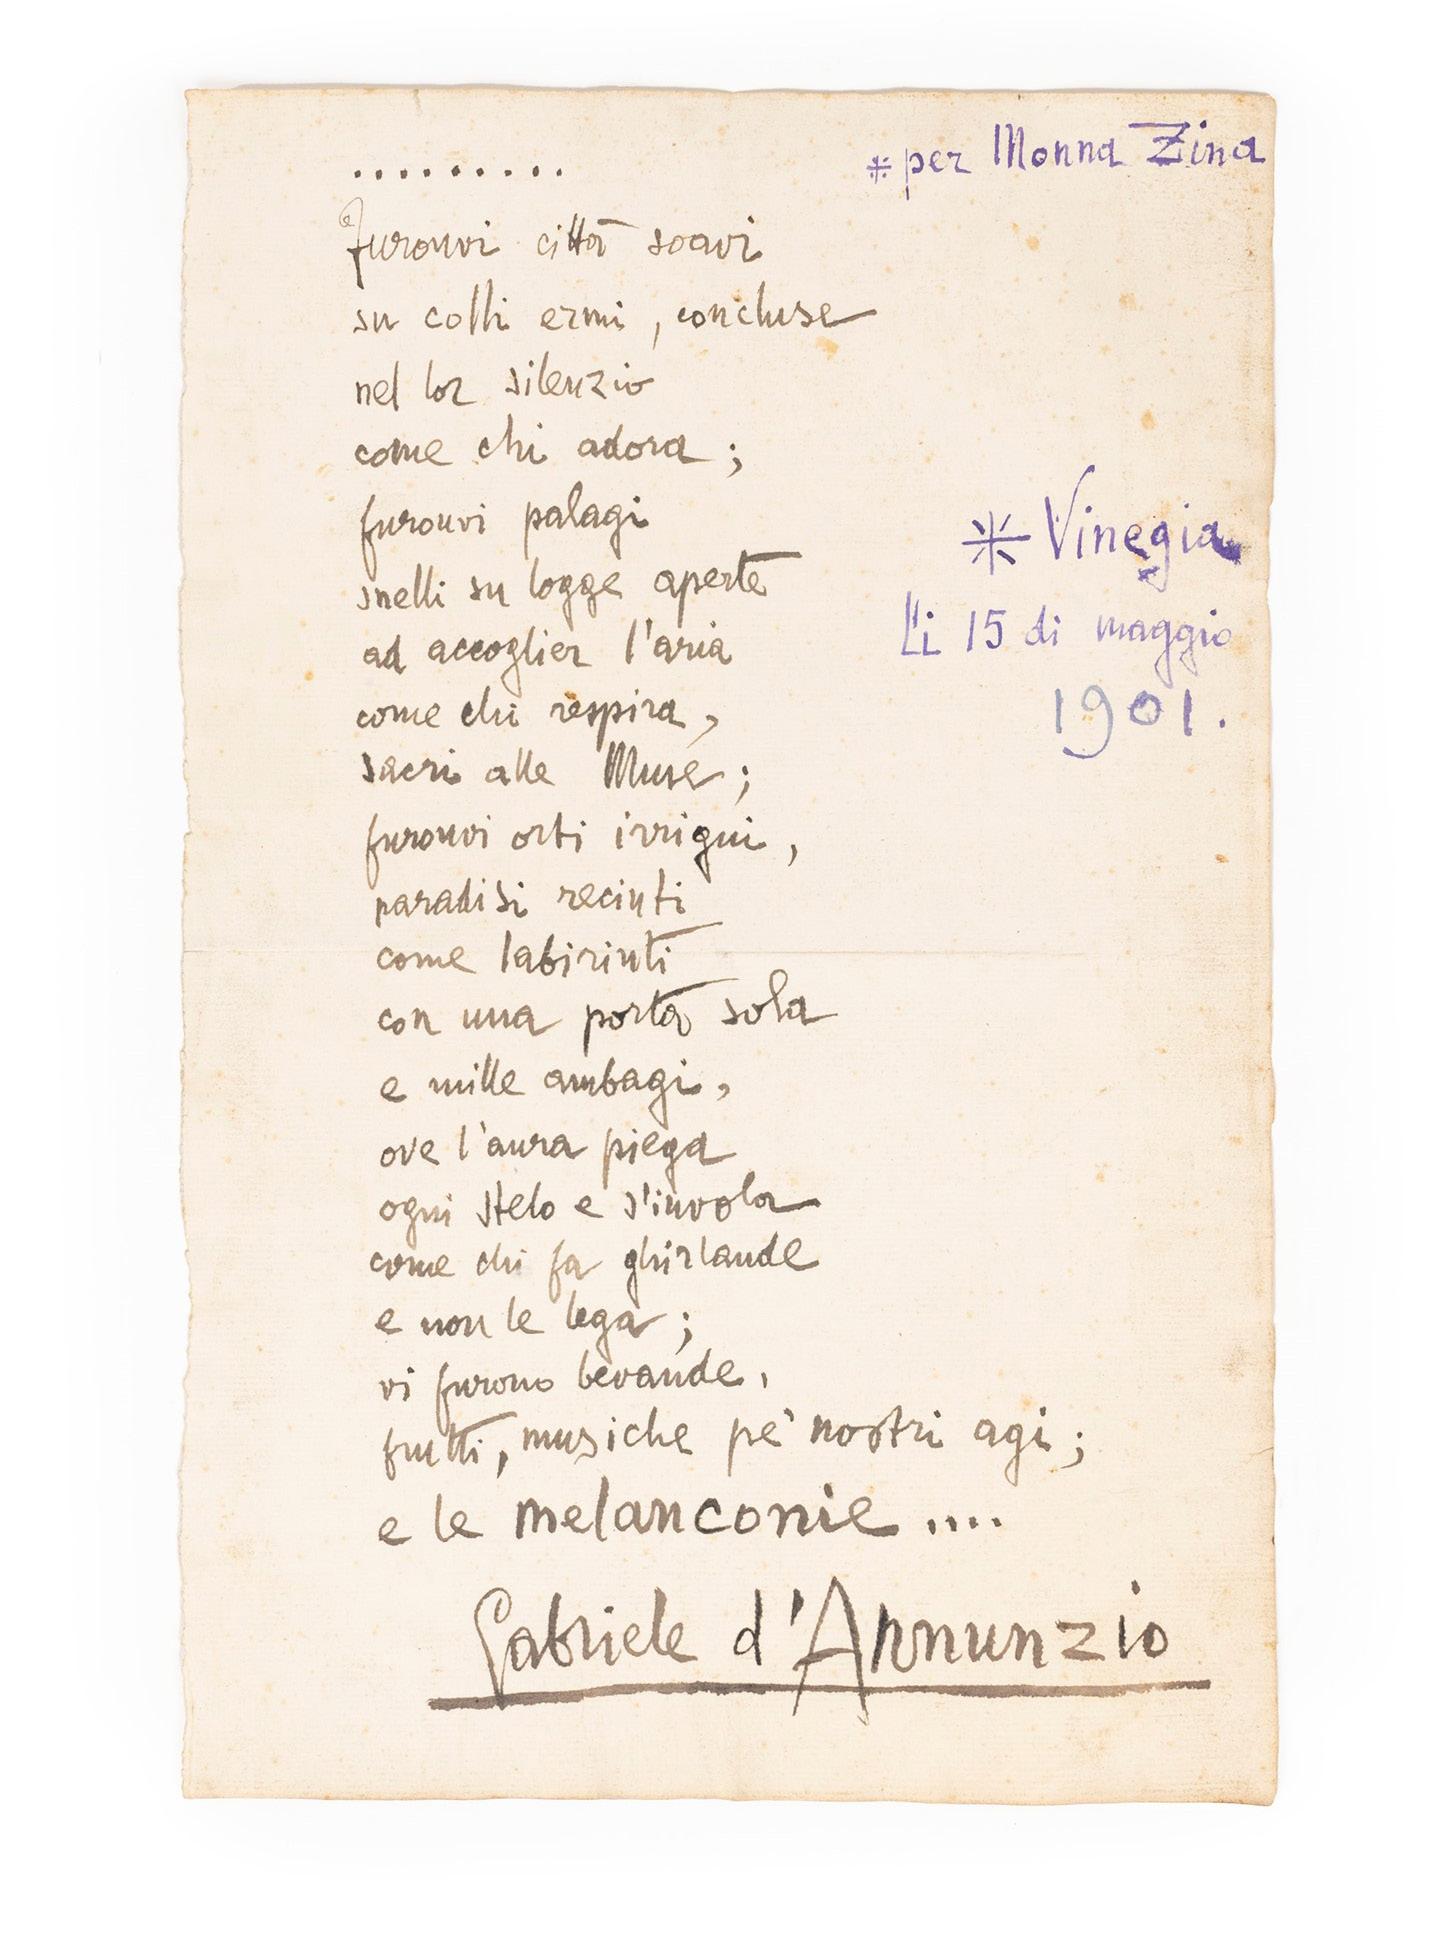 * per Monna Zina
.........
Furonvi città soavi
su colli ermi, concluse
nel lor silenzio
come chi adora;
furonvi palagi
snelli su logge aperte
* Vinegia
Li 15 di maggio
1901.
ad accoglier l'aria
come chi respira,
sacri alle Muse;
furonvi orti irrigui,
paradisi recinti
come labirinti
con una porta sola
e mille ambagi,
ove l'aura piega
ogni stelo e s'invola
come chi fa ghirlande
e non le lega;
vi furono bevande,
frutti, musiche pe' nostri agi;
e le melanconie....
Gabriele d'Annunzio